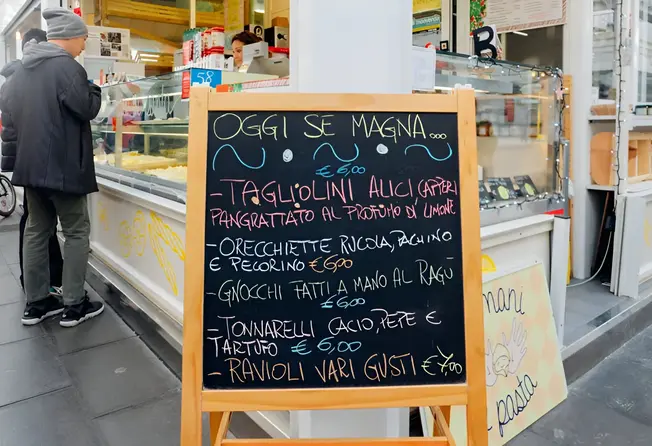 OGGI SE MAGNA...
€6,00
-TAGLIOLINI ALICI CAPPERI
PANGRATTATO AL PROFUMO DI LIMONE
-ORECCHIETTE RUCOLA, PACHINO
E PECORINO €6,00
-GNOCCHI FATTI A MANO AL RAGÙ
€6,00
-TONNARELLI CACIO, PEPE E
TARTUFO €6,00
-RAVIOLI VARI GUSTI €7,00
58
mani
pasta